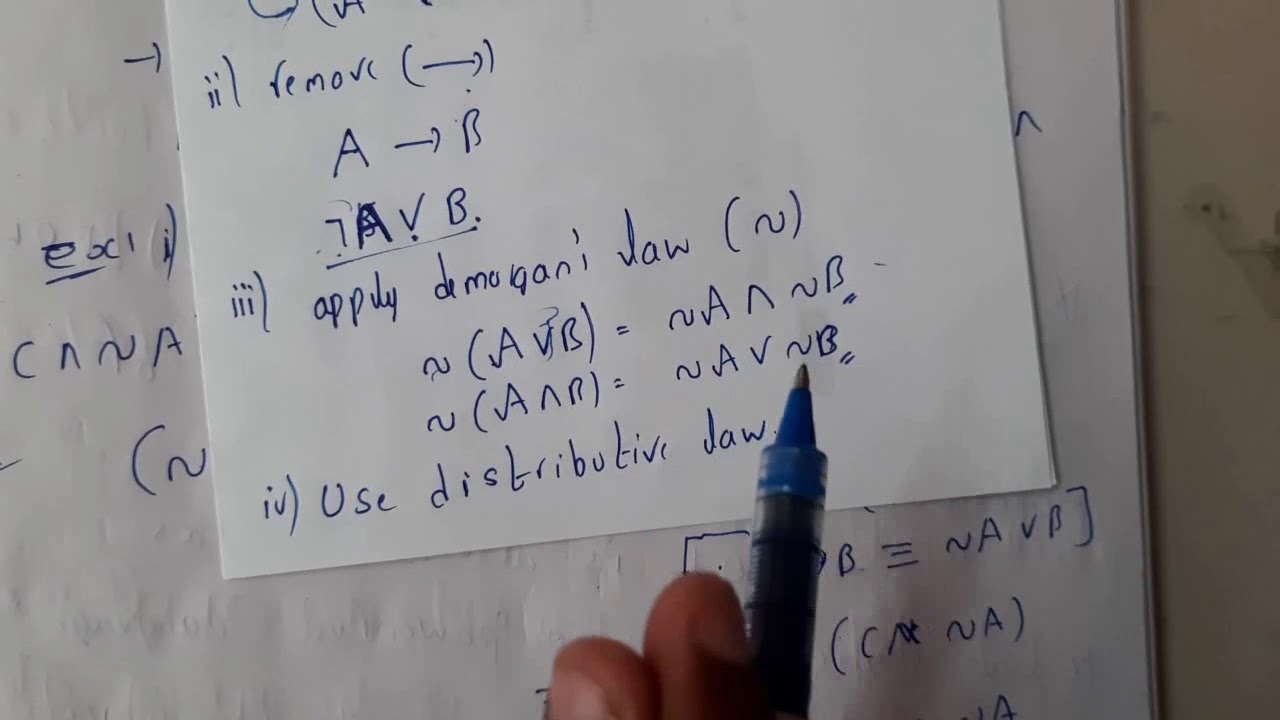 →
ii) remove (→)
A → B
¬A V B.
ex: i)
iii) apply demorgan's law (~)
~(A V B) = ~A ∧ ~B
C ∧ ~A
~(A ∧ B) = ~A V ~B
(~
iv) Use distributive law.
B ≡ ~A V B]
(C ∧ ~A)
~A